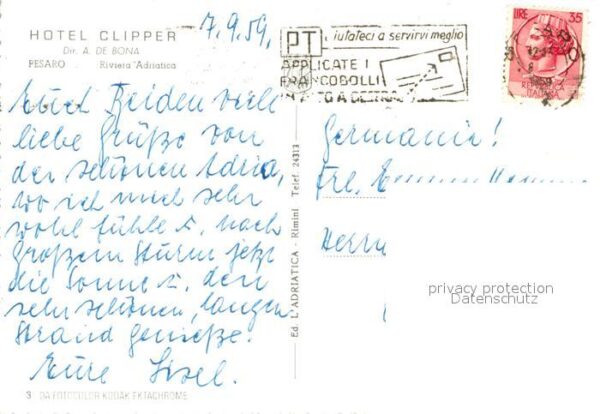 HOTEL CLIPPER
Dir. A. DE BONA
PESARO - Riviera Adriatica
7.9.59.
Euch Beiden viele
liebe Grüße von
der schönen Adria,
wo ich mich sehr
wohl fühle u. nach
großem Sturm jetzt
die Sonne u. den
sehr schönen, langen
Strand genieße.
Eure Lisel.
3 DA FOTOCOLOR KODAK EKTACHROME
Ed. L'ADRIATICA - Rimini Telef. 24313
PT
iutateci a servirvi meglio
APPLICATE I
FRANCOBOLLI
IN ALTO A DESTRA
LIRE 35
Germania!
Frl.
Herrn
privacy protection
Datenschutz